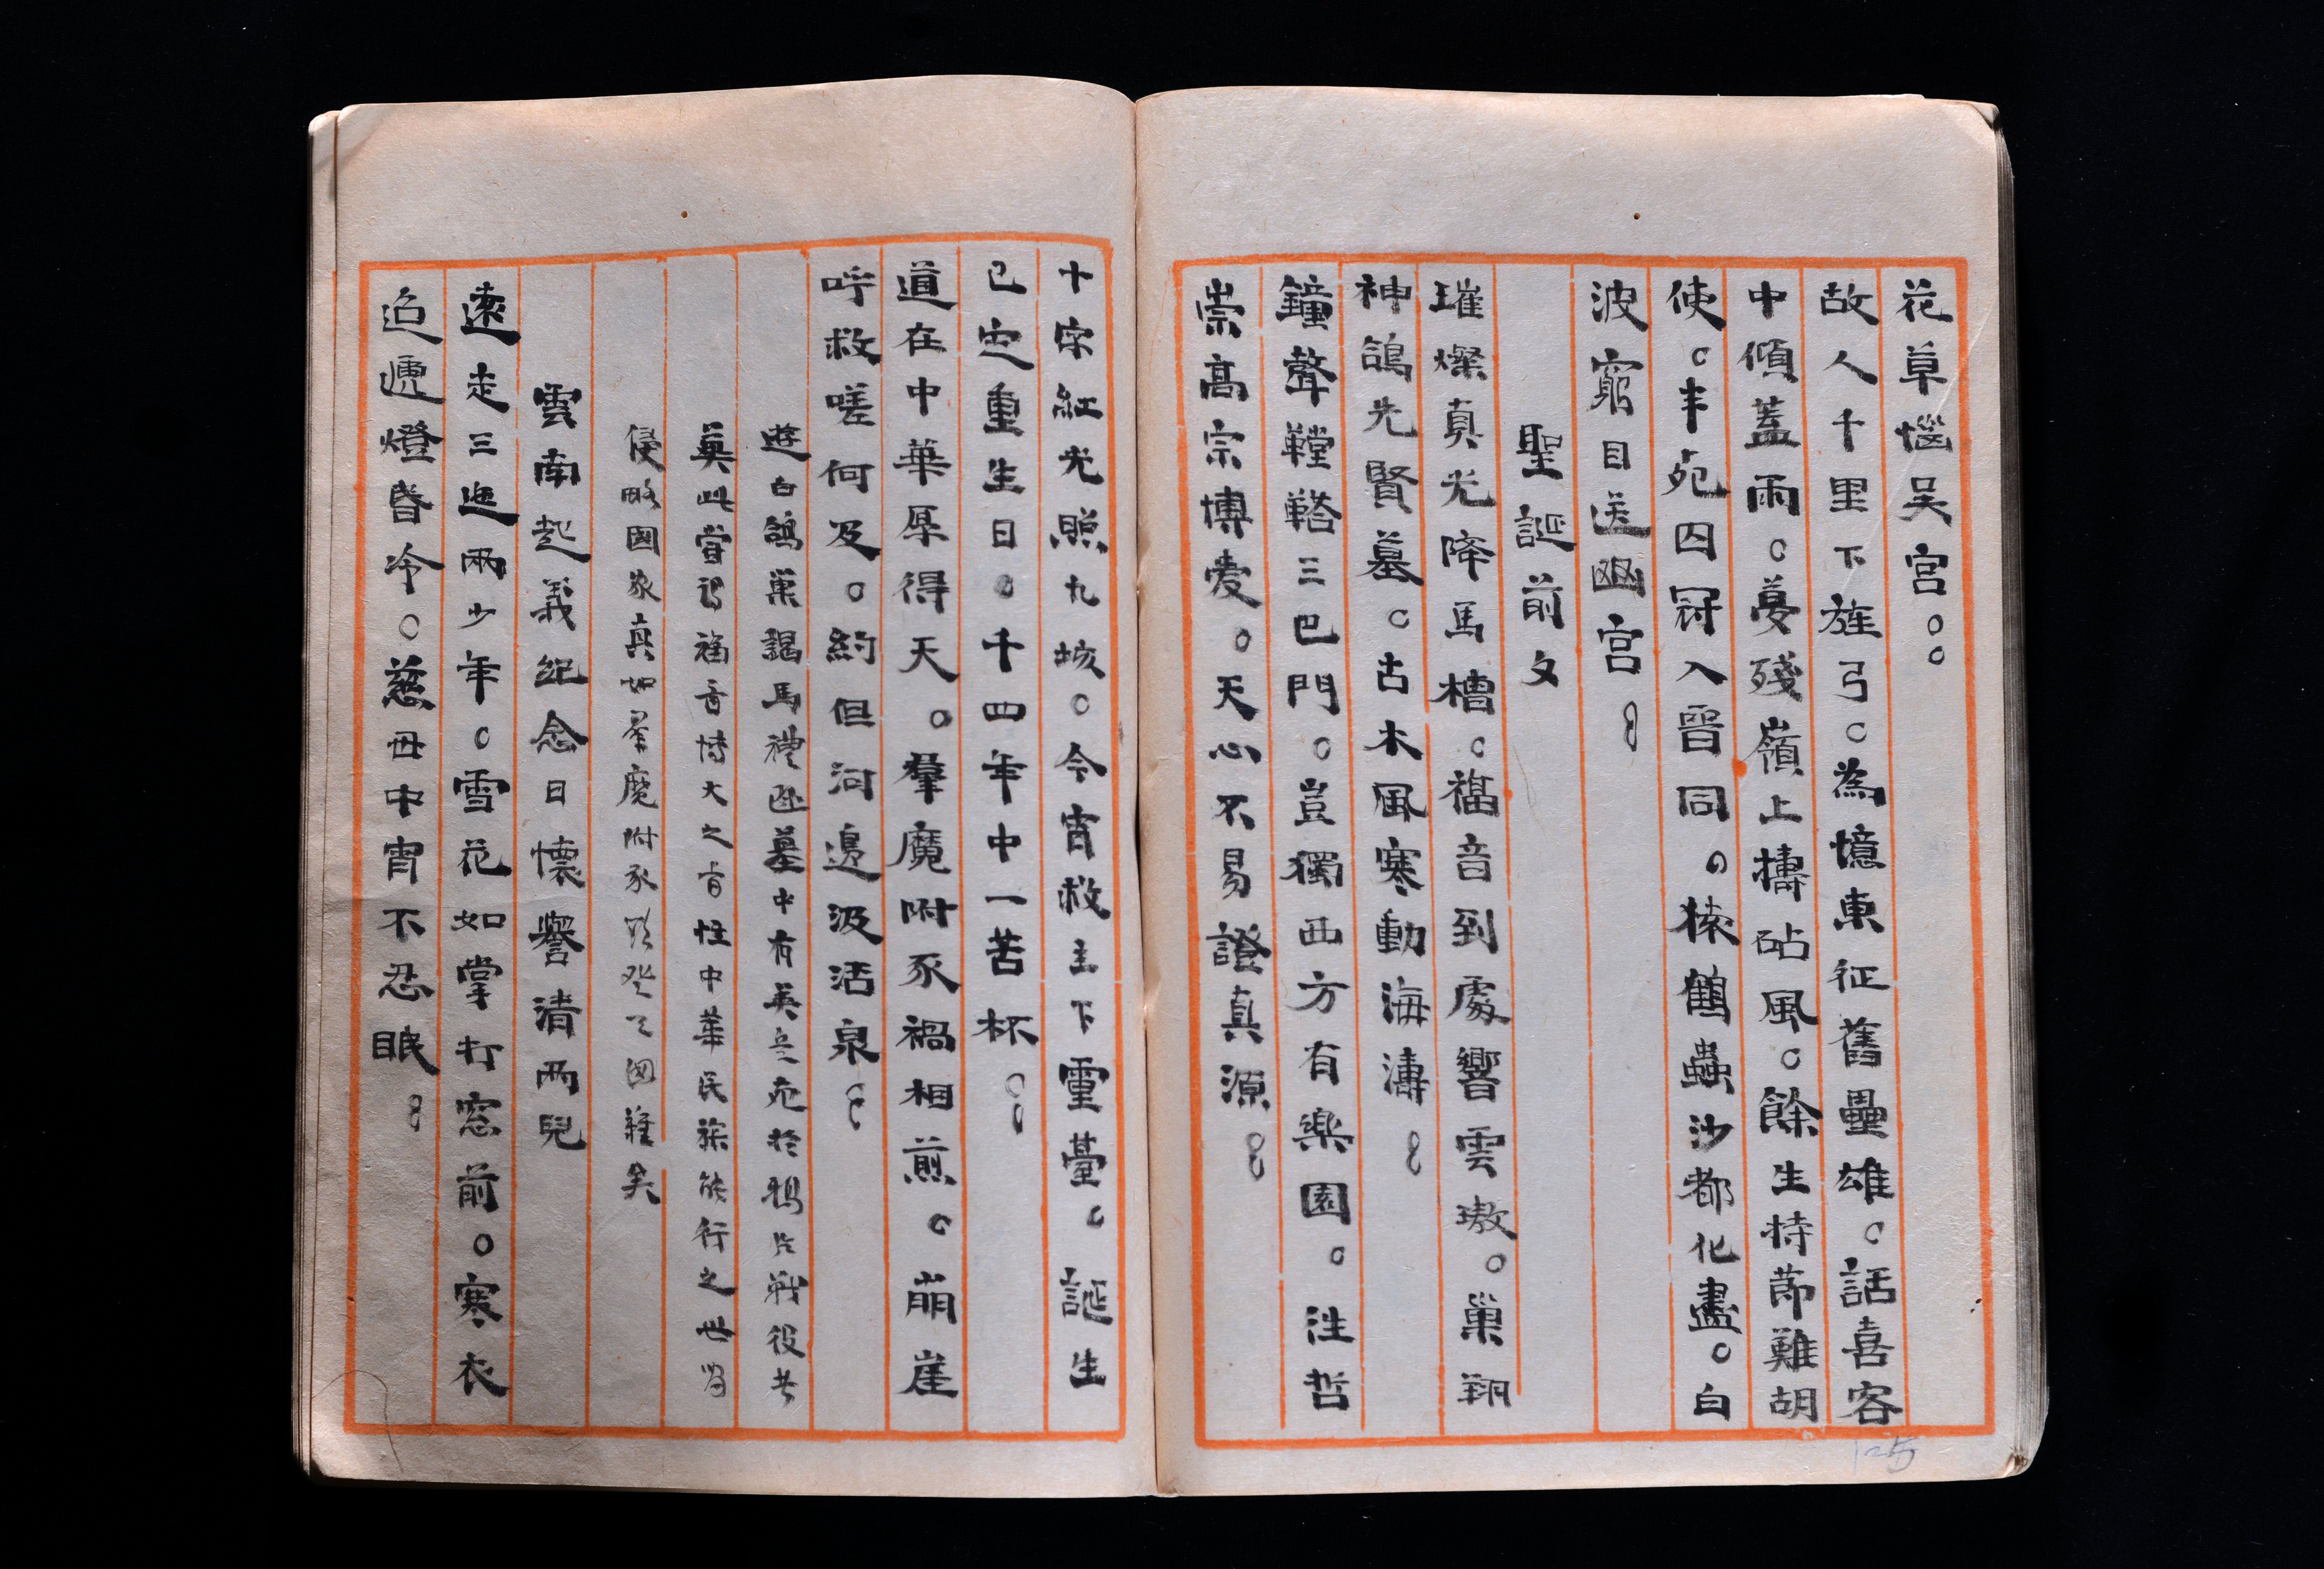 花草惱吳宮。。
故人千里下旌弓。為憶東征舊壘雄。話喜客
中傾蓋雨。蔓殘嶺上擣砧風。餘生持節難胡
使。半宛囚冠入晉同。猿鶴蟲沙都化盡。白
波窮目送幽宮。
聖誕前夕
璀燦真光降馬槽。福音到處響雲璈。巢翔
神鴿先賢墓。古木風寒動海濤。
鐘聲鞺鞳三巴門。豈獨西方有樂園。注哲
崇高宗博愛。天心不易證真源。
十字紅光照九垓。今宵救主下靈臺。誕生
已定重生日。千四年中一苦杯。
道在中華厚得天。羣魔附豕禍相煎。崩崖
呼救嗟何及。約但河邊汲活泉。
遊白鴿巢謁馬禮遜墓中有英兵死於鴉片戰役者
莫此當謂福音博大之旨惟中華民族能行之世尚
侵略國家真如羣魔附豕 國難矣
雲南起義紀念日懷譽清兩兒
遠走三迤兩少年。雪花如掌打窓前。寒衣
迢遞燈昏冷。慈母中宵不忍眠。
125